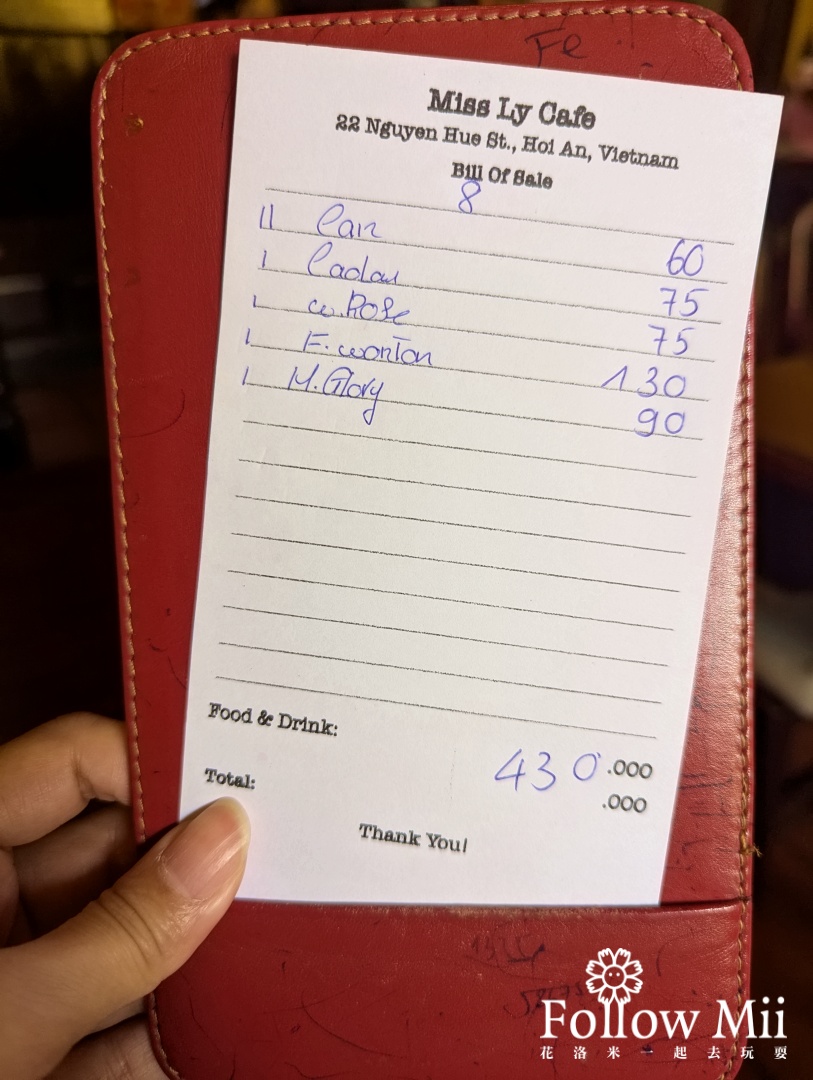 Fe
Miss Ly Cafe
22 Nguyen Hue St., Hoi An, Vietnam
Bill Of Sale
8
11 Can 60
1 Caolau 75
1 W.Rose 75
1 F.wonton 130
1 M.Glory 90
Food & Drink: 430.000
Total: .000
Thank You!
Follow Mii
花洛米一起去玩耍